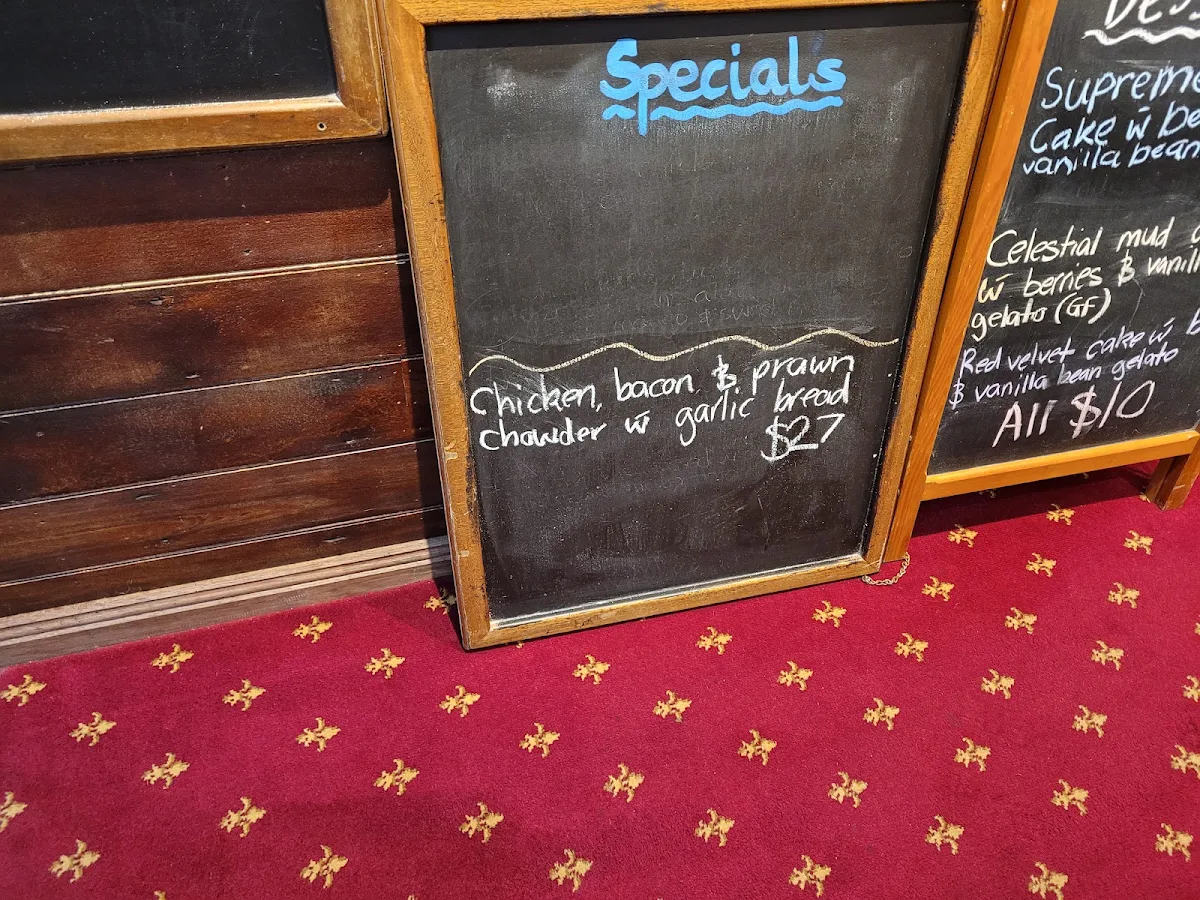 Specials
Chicken, bacon & prawn
chowder w̄ garlic bread
$27
Supreme
Cake w̄
vanilla bean
Celestial mud
w̄ berries & vanill
gelato (GF)
Red velvet cake w̄
& vanilla bean gelato
All $10